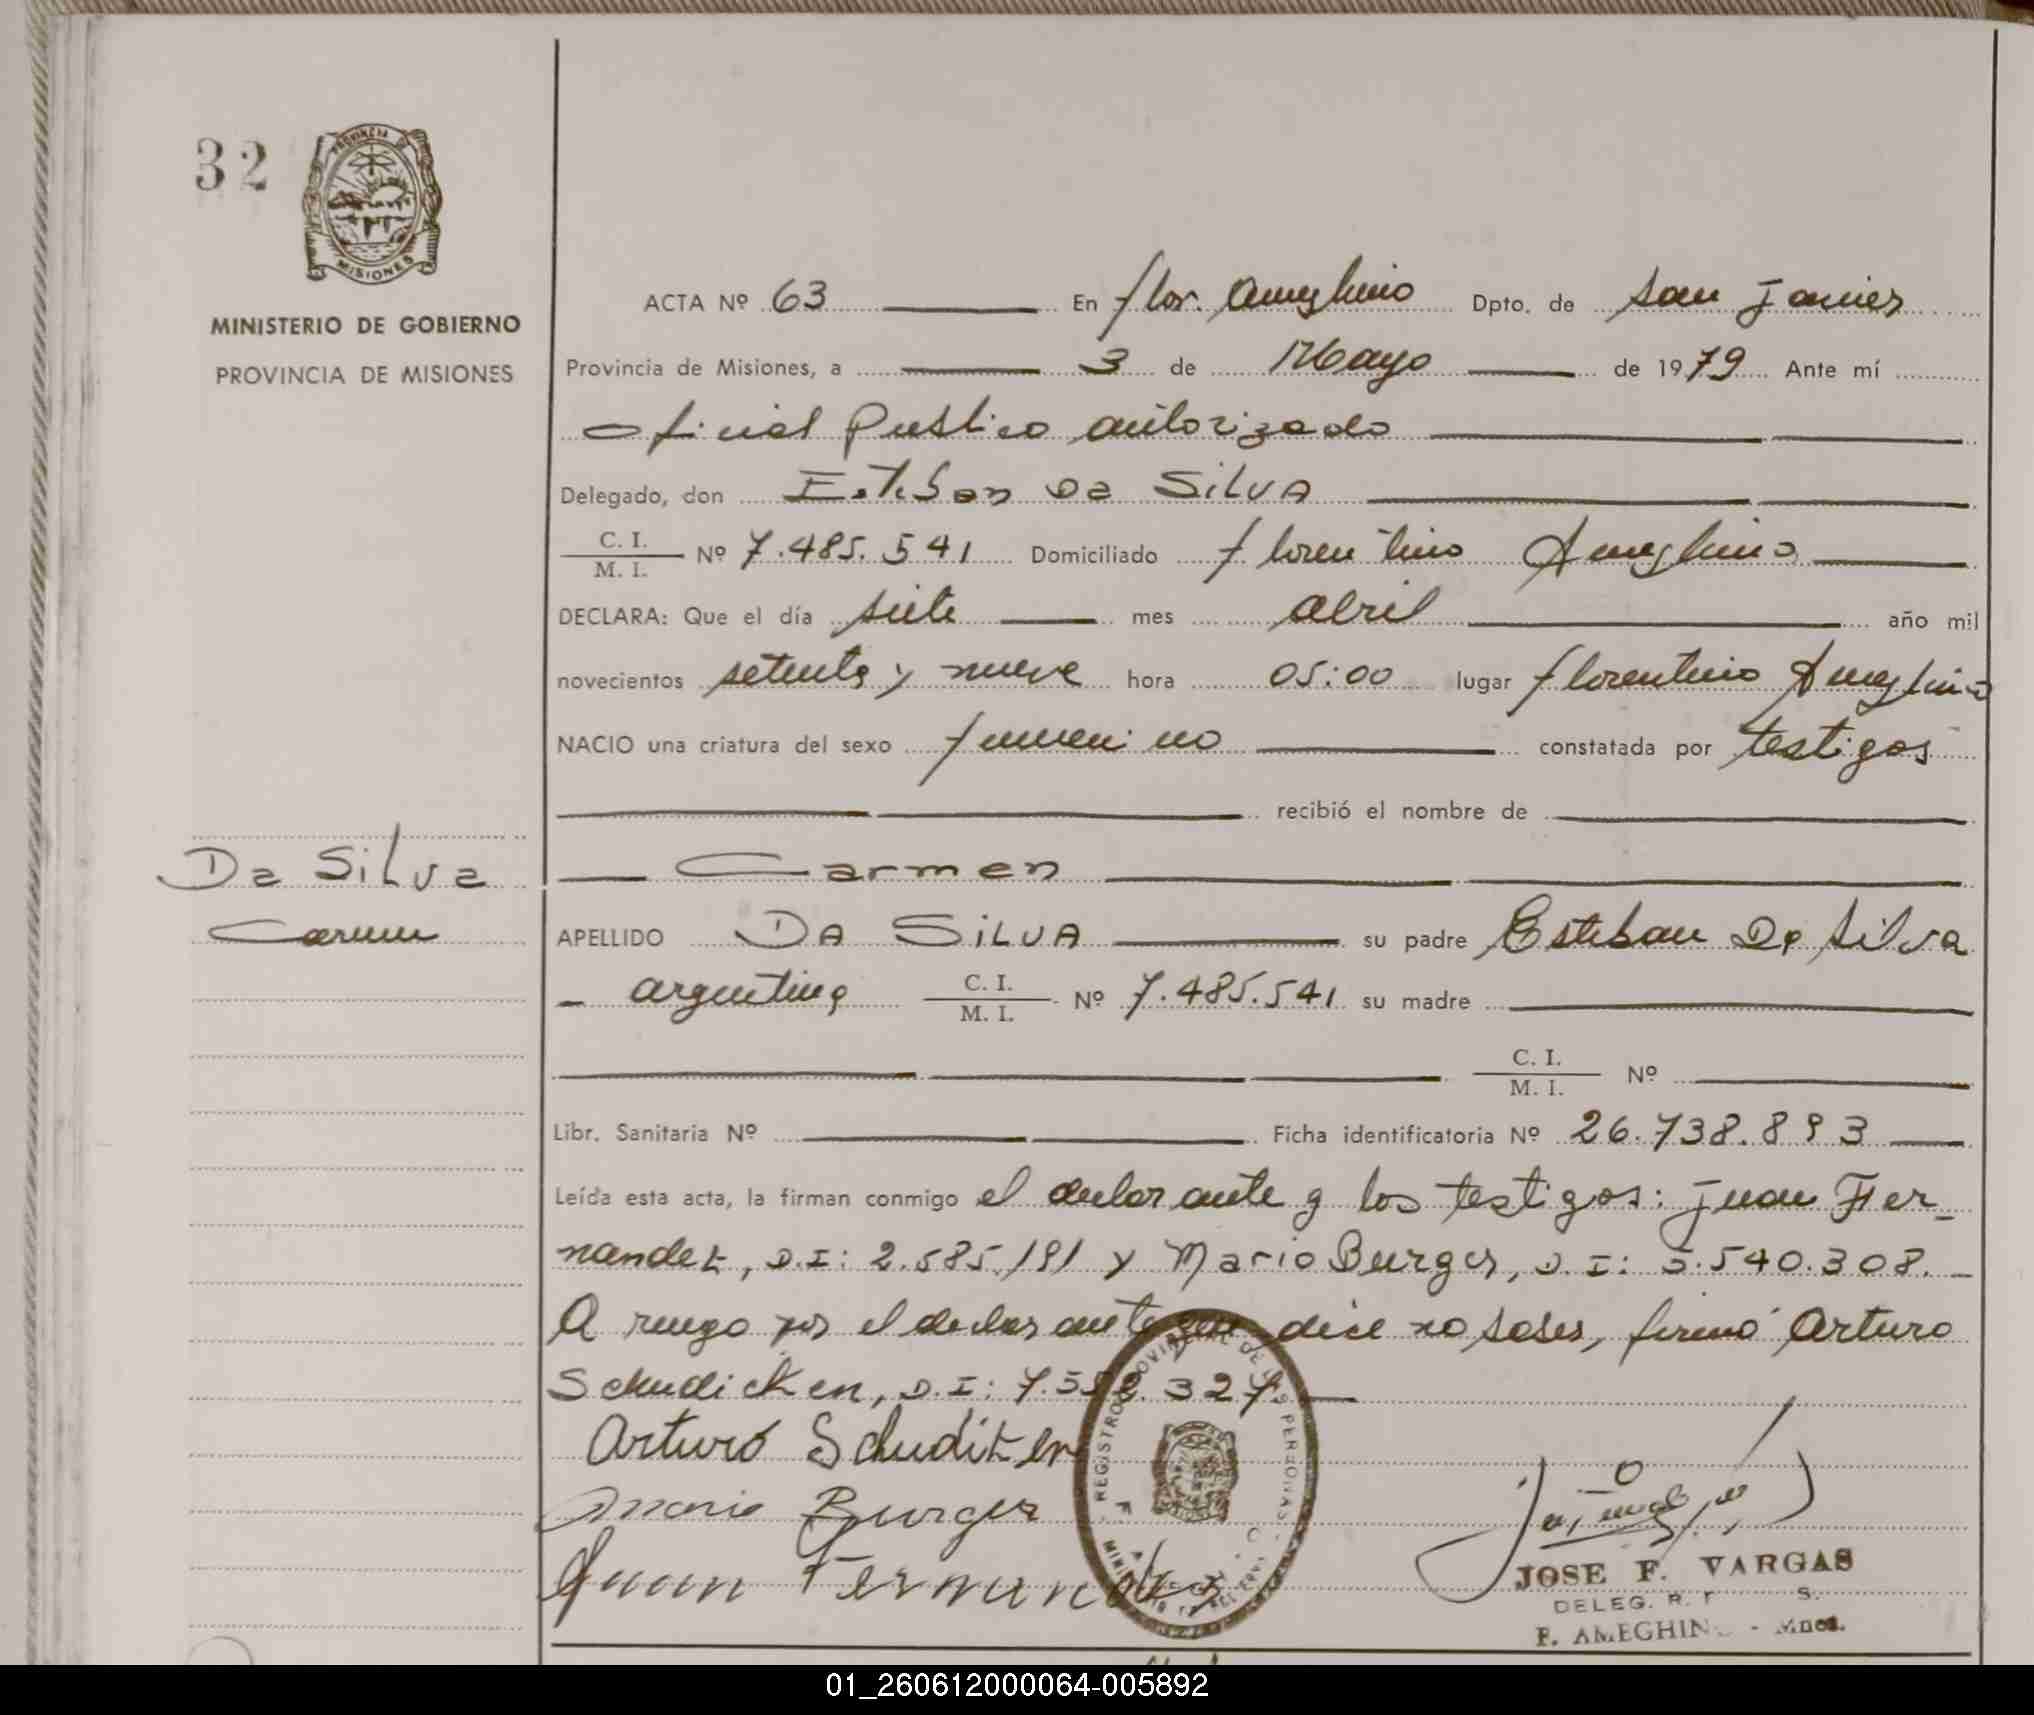 32
PROVINCIA DE
MISIONES
MINISTERIO DE GOBIERNO
PROVINCIA DE MISIONES
ACTA Nº 63 En Flor. Ameghino Dpto. de San Javier
Provincia de Misiones, a 3 de Mayo de 1979 Ante mí
oficial Publico autorizado
Delegado, don Esteban Da Silva
C. I.
M. I. Nº 7.485.541 Domiciliado Florentino Ameghino
DECLARA: Que el día siete mes abril año mil
novecientos setenta y nueve hora 05:00 lugar Florentino Ameghino
NACIO una criatura del sexo femenino constatada por testigos
recibió el nombre de
Da Silva
Carmen
Carmen
APELLIDO DA SILVA su padre Esteban Da Silva
- argentina C. I.
M. I. Nº 7.485.541 su madre
C. I.
M. I. Nº
Libr. Sanitaria Nº Ficha identificatoria Nº 26.738.893
Leída esta acta, la firman conmigo el declarante y los testigos: Juan Fer-
nandez, D.I: 2.585.191 y Mario Burger, D.I: 5.540.308.-
A ruego por el declarante que dice no saber, firmó Arturo
Schudicken, D.I: 7.552.327.-
Arturo Schuditken
Mario Burger
Juan Fernandez
REGISTRO PROVINCIAL DE LAS PERSONAS
JOSE F. VARGAS
DELEG. R.
F. AMEGHINO - Mnes.
01_260612000064-005892